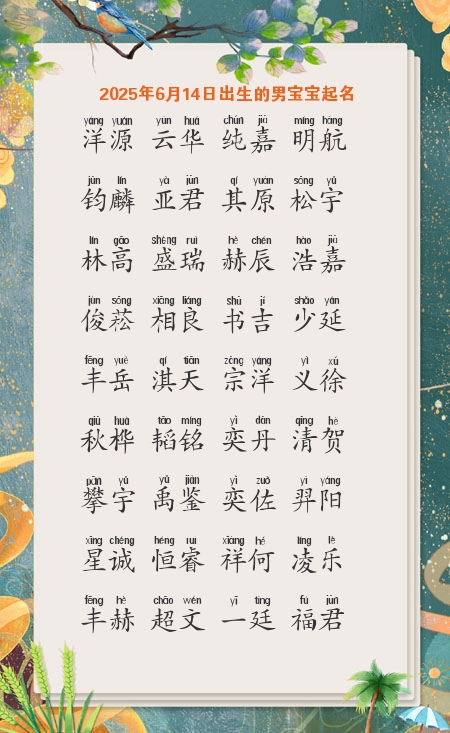 2025年6月14日出生的男宝宝起名
yáng yuán yún huá chún jiā míng háng
洋源 云华 纯嘉 明航
jūn lín yà jūn qí yuán sōng yǔ
钧麟 亚君 其原 松宇
lín gāo shèng ruì hè chén hào jiā
林高 盛瑞 赫辰 浩嘉
jùn sōng xiāng liáng shū jí shǎo yán
俊菘 相良 书吉 少延
fēng yuè qí tiān zōng yáng yì xú
丰岳 淇天 宗洋 义徐
qiū huà tāo míng yì dān qīng hè
秋桦 韬铭 奕丹 清贺
pān yǔ yǔ jiàn yì zuǒ yì yáng
攀宇 禹鉴 奕佐 羿阳
xīng chéng héng ruì xiáng hé líng lè
星诚 恒睿 祥何 凌乐
fēng hè chāo wén yī tíng fú jūn
丰赫 超文 一廷 福君